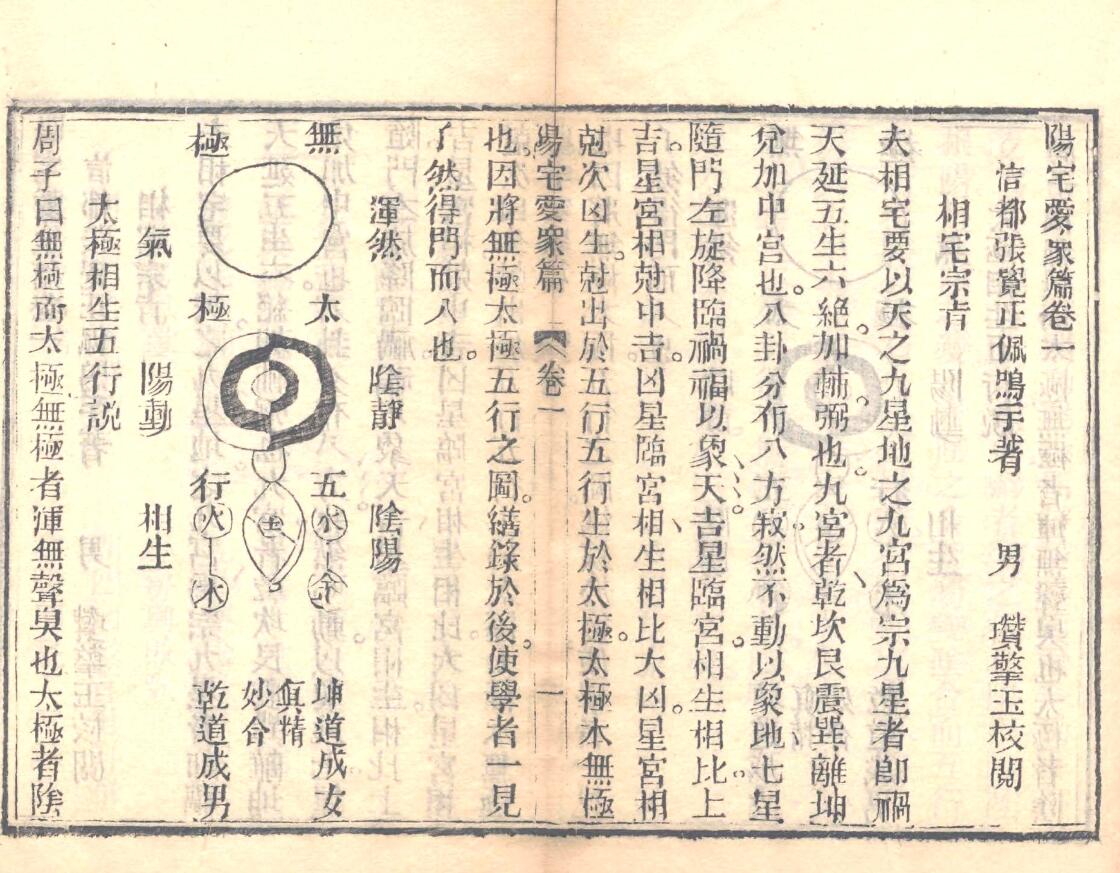 陽宅愛衆篇卷一
信都張覺正佩鳴子著　男　瓚擎玉校閱
相宅宗旨
夫相宅要以天之九星地之九宮爲宗九星者卽禍
天延五生六絕加輔弼也九宮者乾坎艮震巽離坤
兌加中宮也八卦分佈八方寂然不動以象地七星
隨門左旋降臨禍福以象天吉星臨宮相生相比上
吉星宮相尅中吉凶星臨宮相生相比大凶星宮相
尅次凶生尅出於五行五行生於太極太極本無極
陽宅愛衆篇　卷一　一
也因將無極太極五行之圖繕錄於後使學者一見
了然得門而入也
渾然　陰靜　陰陽
無　太　五　水　金　坤道成女
土　眞精
妙合
極　極　行　火　木　乾道成男
氣　陽動　相生
太極相生五行説
周子曰無極而太極無極者渾無聲臭也太極者陰